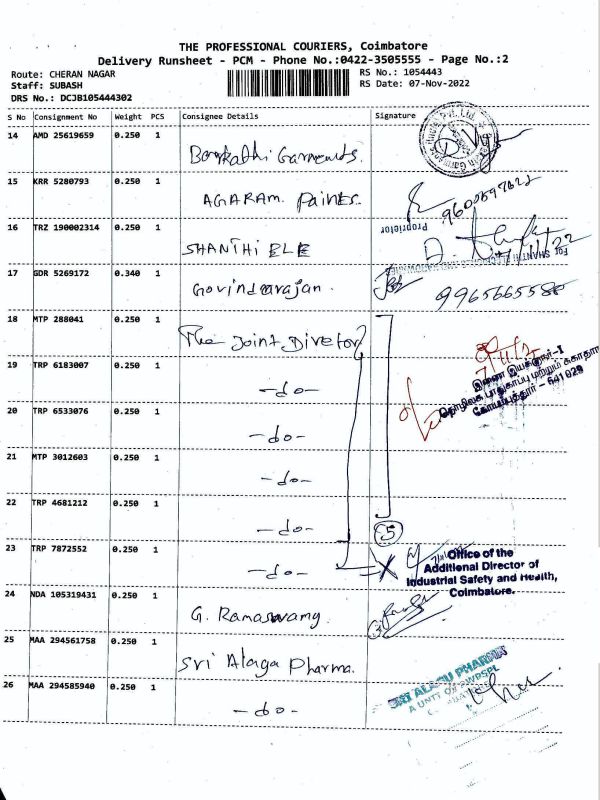 THE PROFESSIONAL COURIERS, Coimbatore
Delivery Runsheet - PCM - Phone No.:0422-3505555 - Page No.:2
Route: CHERAN NAGAR
Staff: SUBASH
DRS No.: DCJB105444302
RS No.: 1054443
RS Date: 07-Nov-2022
S No Consignment No Weight PCS Consignee Details Signature
14 AMD 25619659 0.250 1
Garments.
15 KRR 5280793 0.250 1
AGARAM Paines. 9600597622
16 TRZ 190002314 0.250 1
Proprietor
SHANTHI ELE
For SHANTHI
17 GDR 5269172 0.340 1
Govindarajan. 9965665580
18 MTP 288041 0.250 1
The Joint Director
இணை இயக்குநர்-I
தொழிலக பாதுகாப்பு மற்றும் சுகாதார
கோயம்புத்தூர் - 641 029
19 TRP 6183007 0.250 1
-do-
20 TRP 6533076 0.250 1
-do-
21 MTP 3012603 0.250 1
-do-
22 TRP 4681212 0.250 1
-do- 5
23 TRP 7872552 0.250 1
-do-
Office of the
Additional Director of
Industrial Safety and Health,
Coimbatore.
24 NDA 105319431 0.250 1
G. Ramaswamy.
25 MAA 294561758 0.250 1
Sri Alaga Pharma.
SRI ALAGU PHARMA
A UNIT OF
26 MAA 294585940 0.250 1
-do-